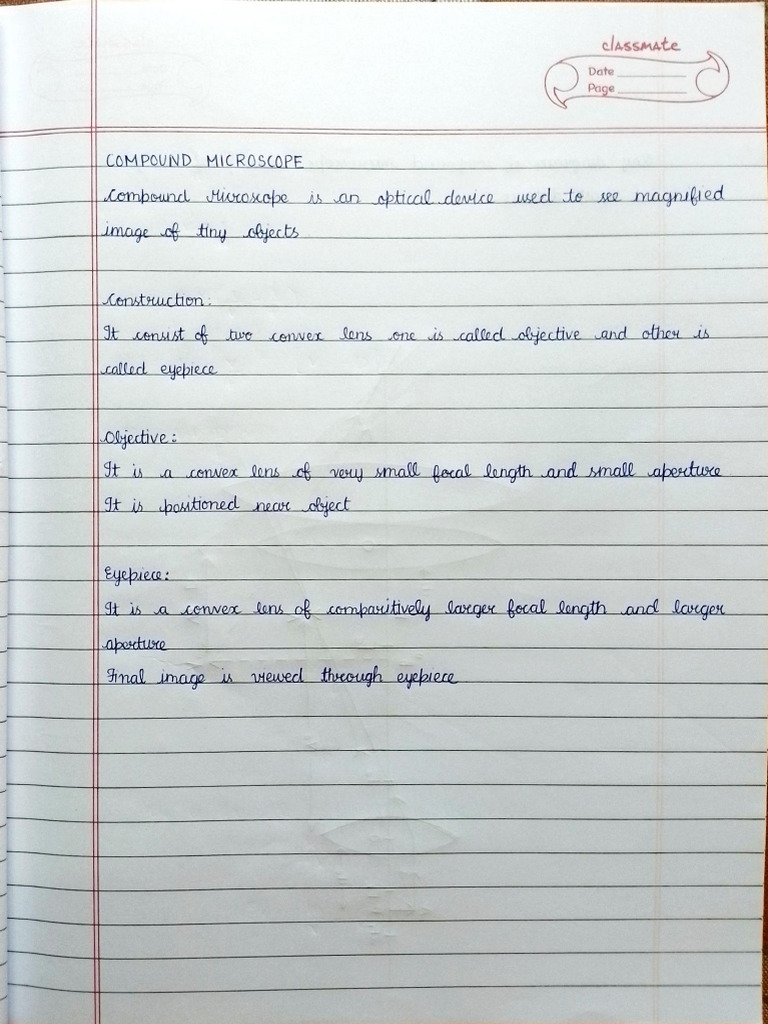 classmate
Date
Page
COMPOUND MICROSCOPE
Compound Microscope is an optical device used to see magnified
image of tiny objects
Construction:
It consist of two convex lens one is called objective and other is
called eyepiece
Objective:
It is a convex lens of very small focal length and small aperture
It is positioned near object
Eyepiece:
It is a convex lens of comparitively larger focal length and larger
aperture
Final image is viewed through eyepiece